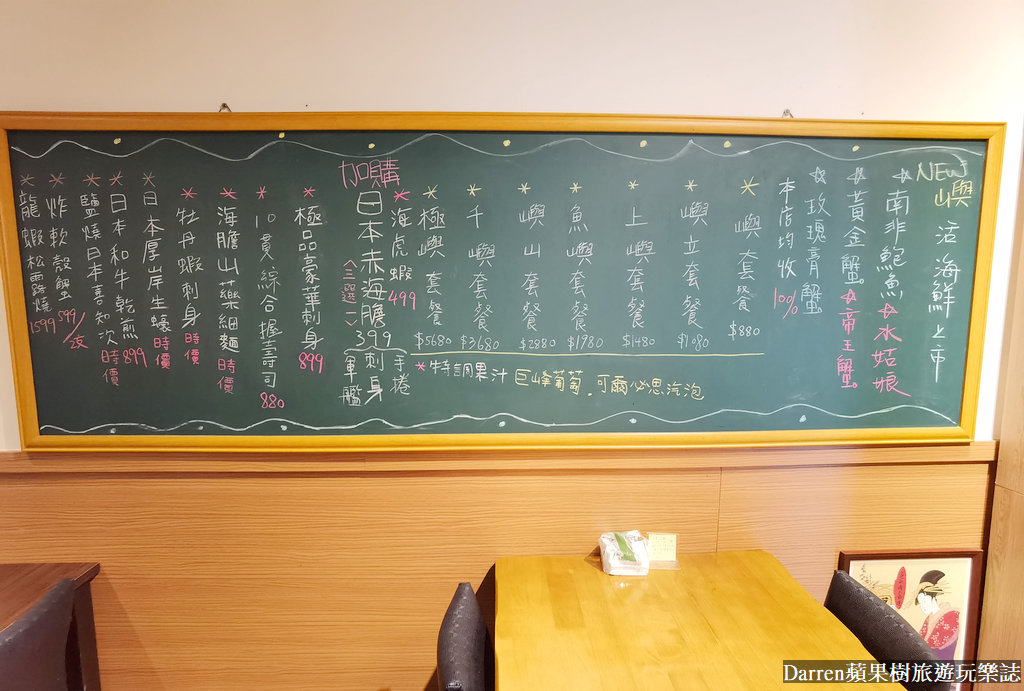 NEW
嶼 活海鮮上市
☆南非鮑魚☆水姑娘
☆黃金蟹。☆帝王蟹。
☆玫瑰膏蟹
本店均收10%
*嶼套餐 $880
*嶼立套餐 $1080
*上嶼套餐 $1480
*魚嶼套餐 $1980
*嶼山套餐 $2880
*千嶼套餐 $3680
*極嶼套餐 $5680
*特調果汁 巨峰葡萄.可爾必思汽泡
加購
*海虎蝦 499
日本赤海膽 399
<三選一>
手捲
刺身
軍艦
*極品豪華刺身 899
*10貫綜合握壽司 880
*海膽山藥細麵 時價
*牡丹蝦刺身 時價
*日本厚岸生蠔 時價
*日本和牛乾煎 899
*鹽燒日本喜知次 時價
*炸軟殼蟹 599/2支
*龍蝦松露燒 1599
Darren蘋果樹旅遊玩樂誌